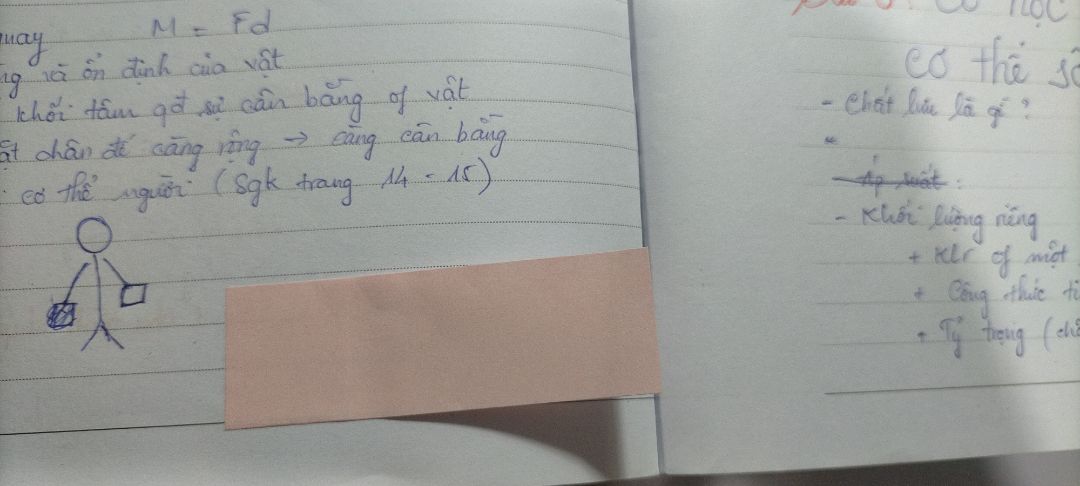 quay M = Fd
ng và ổn định của vật
khối tâm sự cân bằng of vật
chân đế càng rộng → càng cân bằng
cơ thể người (Sgk trang 14 - 15)
cơ học
cơ thể số
- Chất lưu là gì ?
- Áp suất :
- Khối lượng riêng
+ Klr of một
+ Công thức tí
+ Tỷ trọng (chấ